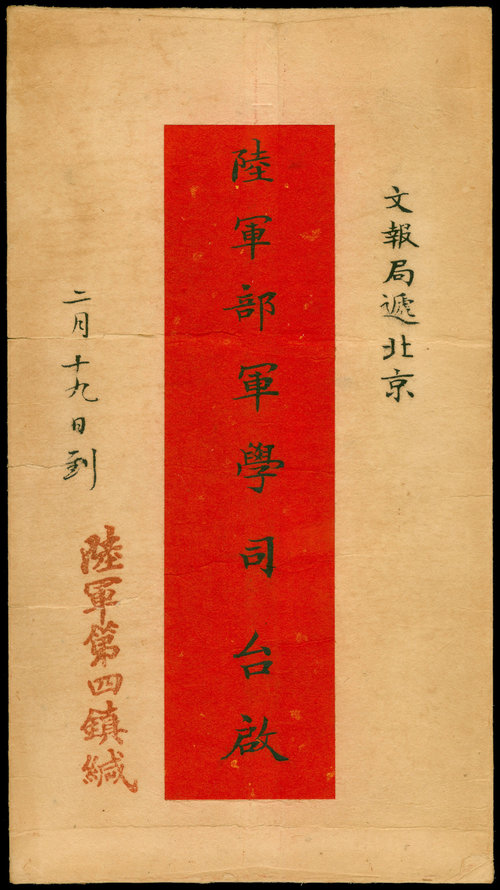 文報局遞北京
陸軍部軍學司台啟
二月十九日到
陸軍第四鎮緘